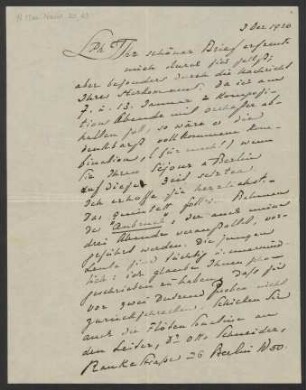 3 Dez 1920
L. Ph. Ihr schöner Brief erfreut
mich durch sich selbst,
aber besonders durch die Nachricht
Ihres Herkommens. Da ich am
7. u 13. Januar 2 Komposi-
tions Abende mit Orchester ab-
halten soll, so wäre es die
denkbarst vollkommene Kom-
bination, (für mich) wenn
Sie Ihren Séjour in Berlin
auf diese Zeit setzten.
Ich erhoffe sie herzlichst.
Das Quintett soll i. Rahmen
des "Anbruch", der auch meine
drei Abende veranstaltet, vor-
geführt werden. Die jungen
Leute sind tüchtig u
ich glaube Ihnen
geschrieben zu haben, dass sie
vor zwei Dutzend Proben nicht
zurückschrecken. Schicken Sie
auch die Flöten
den Leiter, Dr. Otto Schneider,
Rankestrasse 26 Berlin W50